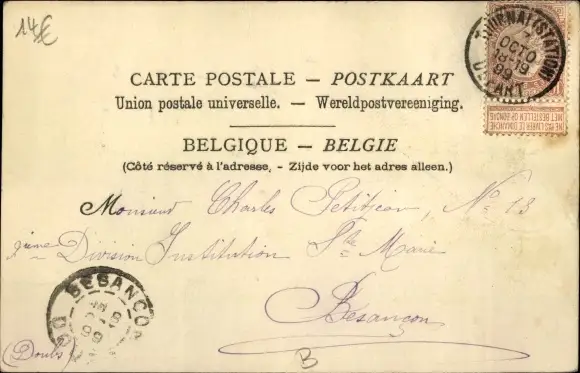 14€
TOURNAI (STATION)
7
OCTO
18-19
99
DEPART
CARTE POSTALE — POSTKAART
Union postale universelle. — Wereldpostvereeniging.
NE PAS LIVRER LE DIMANCHE
NIET BESTELLEN OP ZONDAG
BELGIQUE — BELGIE
(Côté réservé à l'adresse, - Zijde voor het adres alleen.)
Monsieur Charles Petitjean, No 13
Division Institution Ste Marie
BESANCON
99
DOUBS
Besançon
(Doubs)
B